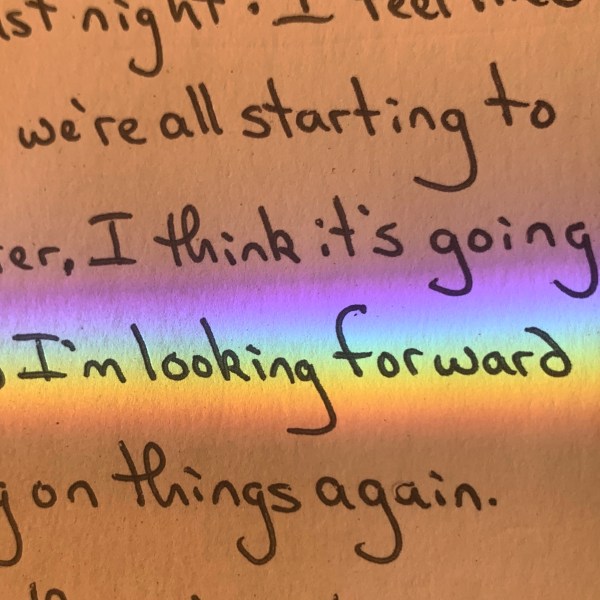 night. I feel
we're all starting to
I think it's going
I'm looking forward
on things again.